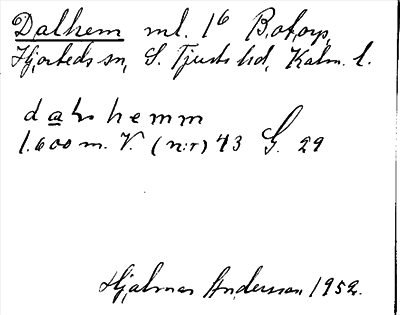 Dalhem ml. 1⁶ Botorp,
Hjorteds sn, S. Tjusts hd, Kalm. l.
dalshemm
1.600 m. V. (n:r) 43 G. 29
Hjalmar Andersson 1952.